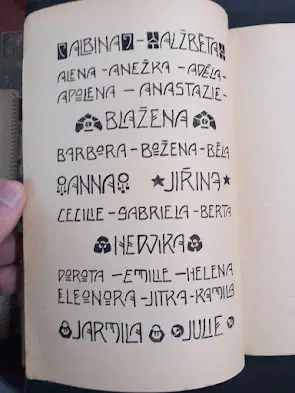 ALBINA - ALŽBĚTA
ALENA - ANEŽKA - ADÉLA -
APOLENA - ANASTAZIE -
BLAŽENA
BARBORA - BOŽENA - BĚLA
ANNA JIŘINA
CECILIE - GABRIELA - BERTA
HEDVIKA
DOROTA - EMILIE - HELENA
ELEONORA - JITKA - KAMILA
JARMILA JULIE